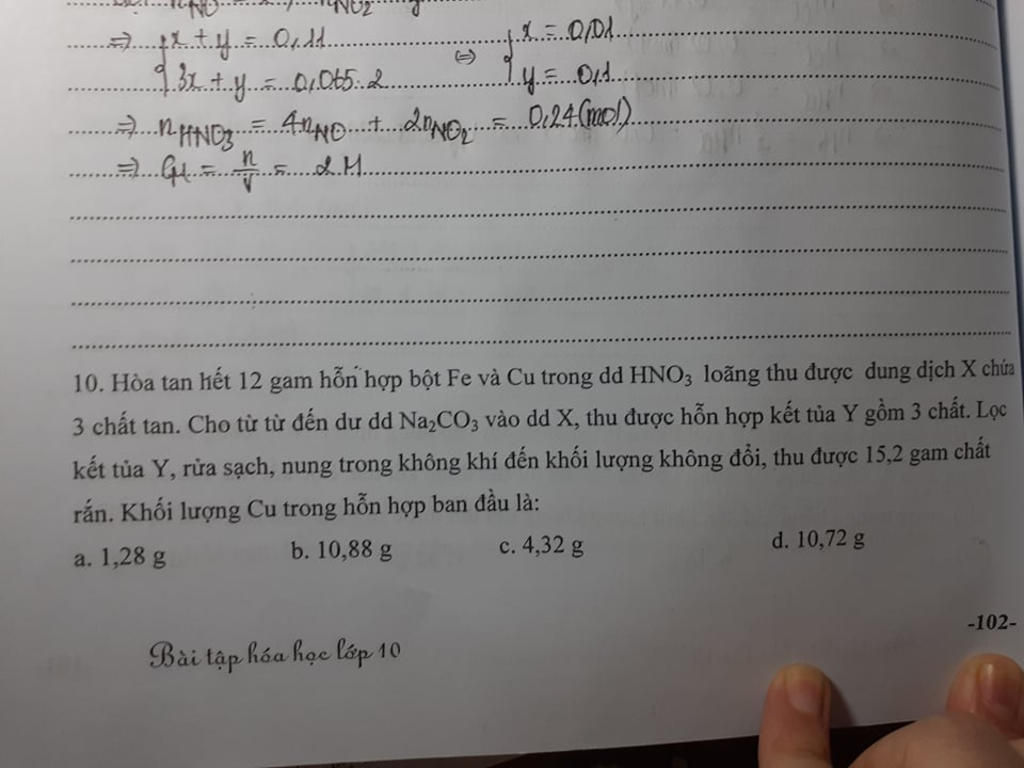 ⇒ { x + y = 0,11 ⇔ { x = 0,01
3x + y = 0,065.2 y = 0,1
⇒ nHNO3 = 4nNO + 2nNO2 = 0,24 (mol)
⇒ CM = n/V = 2 M
10. Hòa tan hết 12 gam hỗn hợp bột Fe và Cu trong dd HNO3 loãng thu được dung dịch X chứa
3 chất tan. Cho từ từ đến dư dd Na2CO3 vào dd X, thu được hỗn hợp kết tủa Y gồm 3 chất. Lọc
kết tủa Y, rửa sạch, nung trong không khí đến khối lượng không đổi, thu được 15,2 gam chất
rắn. Khối lượng Cu trong hỗn hợp ban đầu là:
a. 1,28 g b. 10,88 g c. 4,32 g d. 10,72 g
-102-
Bài tập hóa học lớp 10